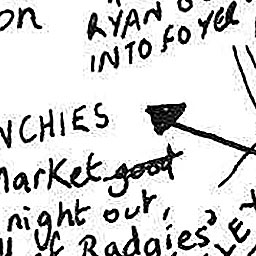 on
RYAN O
INTO FOYER
NCHIES
Market good
night out,
of Radgies'